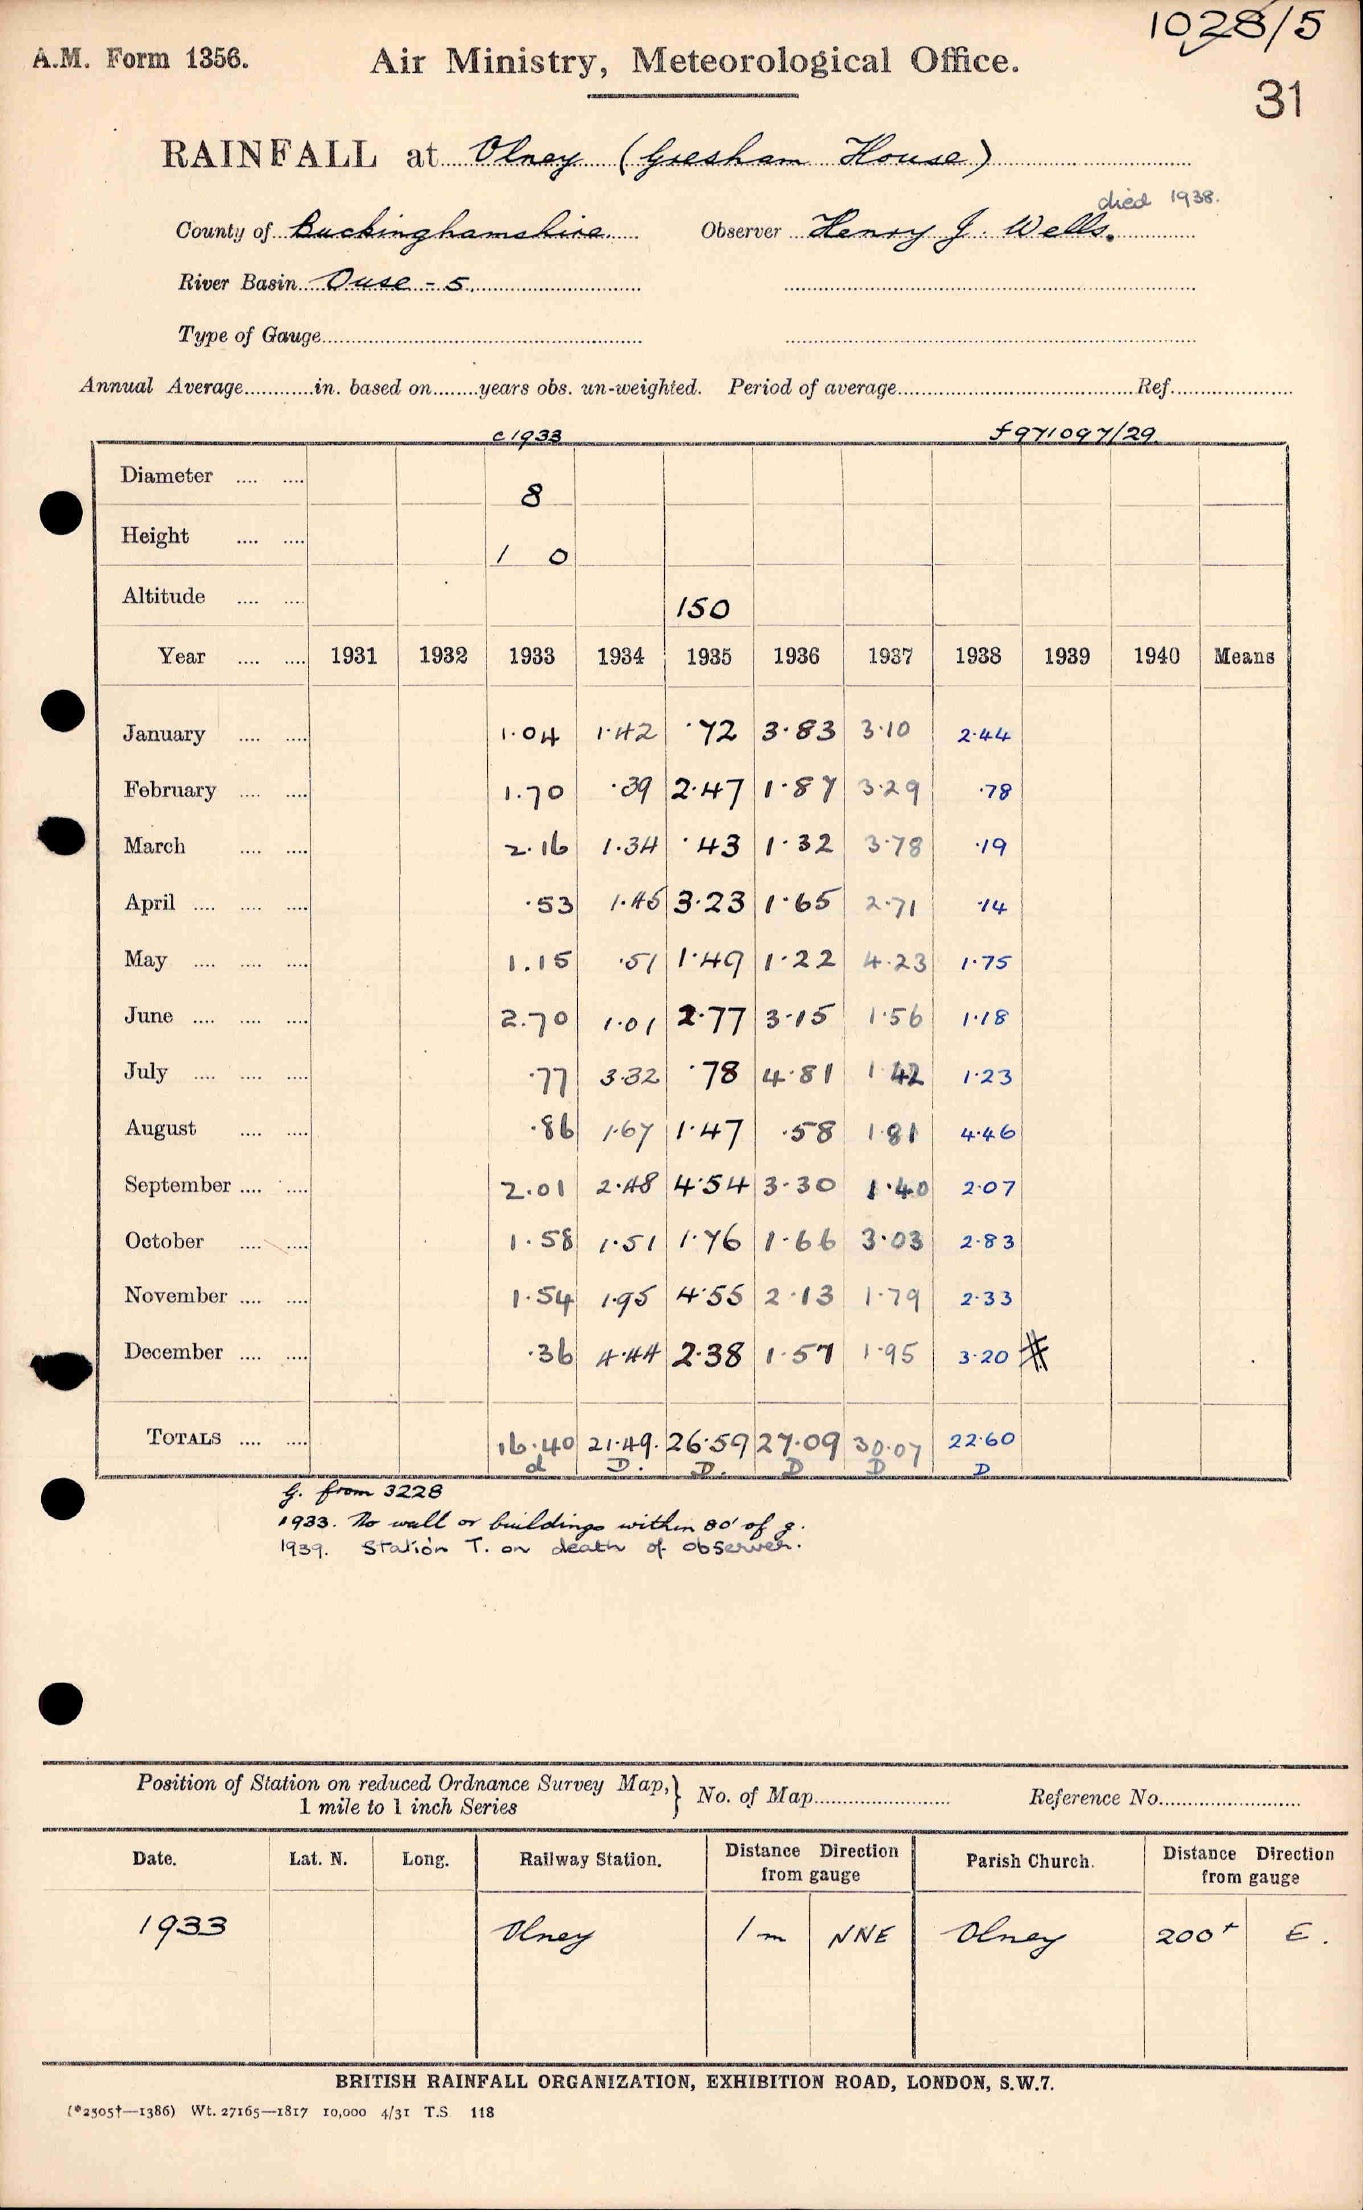 1028/5
A.M. Form 1356. Air Ministry, Meteorological Office.
31
RAINFALL at Olney (Gresham House)
died 1938.
County of Buckinghamshire. Observer Henry J. Wells.
River Basin Ouse - 5.
Type of Gauge
Annual Average in. based on years obs. un-weighted. Period of average Ref.
c 1933 f971097/29
Diameter 8
Height 1 0
Altitude 150
Year 1931 1932 1933 1934 1935 1936 1937 1938 1939 1940 Means
January 1.04 1.42 .72 3.83 3.10 2.44
February 1.70 .39 2.47 1.87 3.29 .78
March 2.16 1.34 .43 1.32 3.78 .19
April .53 1.45 3.23 1.65 2.71 .14
May 1.15 .51 1.49 1.22 4.23 1.75
June 2.70 1.01 2.77 3.15 1.56 1.18
July .77 3.32 .78 4.81 1.42 1.23
August .86 1.67 1.47 .58 1.81 4.46
September 2.01 2.48 4.54 3.30 1.40 2.07
October 1.58 1.51 1.76 1.66 3.03 2.83
November 1.54 1.95 4.55 2.13 1.79 2.33
December .36 4.44 2.38 1.57 1.95 3.20 #
TOTALS 16.40 21.49. 26.59 27.09 30.07 22.60
d D. D. D D D
G. from 3228
1933. No wall or buildings within 80' of g.
1939. Station T. on death of observer.
Position of Station on reduced Ordnance Survey Map, } No. of Map Reference No.
1 mile to 1 inch Series
Date. Lat. N. Long. Railway Station. Distance Direction from gauge Parish Church. Distance Direction from gauge
1933 Olney 1 m NNE Olney 200+ E.
BRITISH RAINFALL ORGANIZATION, EXHIBITION ROAD, LONDON, S.W.7.
(*2505†—1386) Wt. 27165—1817 10,000 4/31 T.S. 118